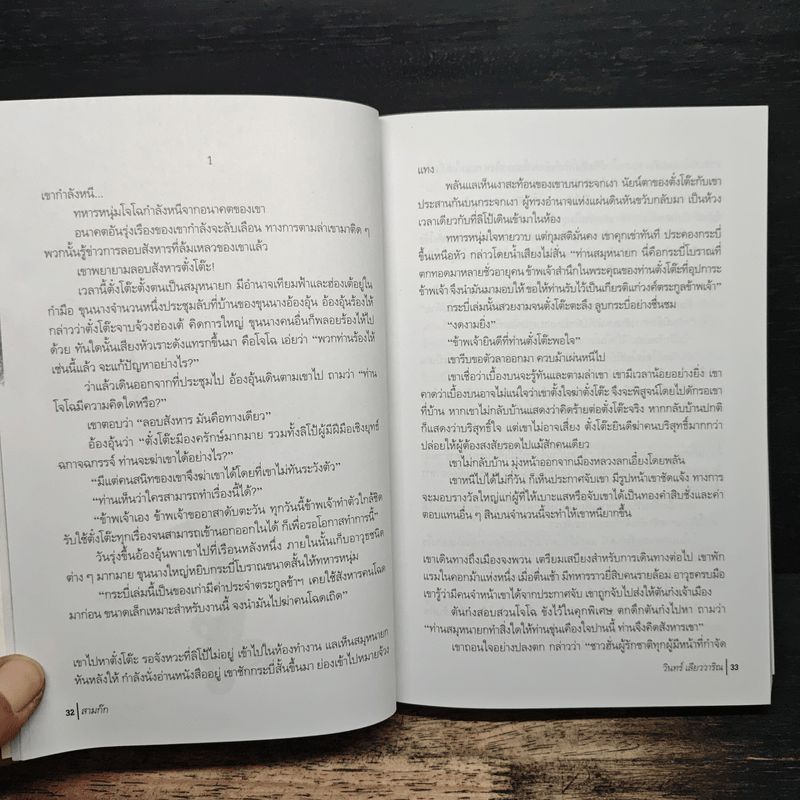 1
เขากำลังหนี...
ทหารหนุ่มโจโฉกำลังหนีจากอนาคตของเขา
อนาคตอันรุ่งเรืองของเขากำลังจะลับเลือน ทางการตามล่าเขามาติด ๆ
พวกนั้นรู้ข่าวการลอบสังหารที่ล้มเหลวของเขาแล้ว
เขาพยายามลอบสังหารตั๋งโต๊ะ!
เวลานี้ตั๋งโต๊ะตั้งตนเป็นสมุหนายก มีอำนาจเทียมฟ้าและฮ่องเต้อยู่ใน
กำมือ ขุนนางจำนวนหนึ่งประชุมลับที่บ้านของขุนนางอ้องอุ้น อ้องอุ้นร้องไห้
กล่าวว่าตั๋งโต๊ะจาบจ้วงฮ่องเต้ คิดการใหญ่ ขุนนางคนอื่นก็พลอยร้องไห้ไป
ด้วย ทันใดนั้นเสียงหัวเราะดังแทรกขึ้นมา คือโจโฉ เอ่ยว่า “พวกท่านร้องไห้
เช่นนี้แล้ว จะแก้ปัญหาอย่างไร?”
ว่าแล้วเดินออกจากที่ประชุมไป อ้องอุ้นเดินตามเขาไป ถามว่า “ท่าน
โจโฉมีความคิดใดหรือ?”
เขาตอบว่า “ลอบสังหาร มันคือทางเดียว”
อ้องอุ้นว่า “ตั๋งโต๊ะมีองครักษ์มากมาย รวมทั้งลิโป้ผู้มีฝีมือเชิงยุทธ์
ฉกาจฉกรรจ์ ท่านจะฆ่าเขาได้อย่างไร?”
“มีแต่คนสนิทของเขาจึงฆ่าเขาได้โดยที่เขาไม่ทันระวังตัว”
“ท่านเห็นว่าใครสามารถทำเรื่องนี้ได้?”
“ข้าพเจ้าเอง ข้าพเจ้าขออาสาดับตะวัน ทุกวันนี้ข้าพเจ้าทำตัวใกล้ชิด
รับใช้ตั๋งโต๊ะทุกเรื่องจนสามารถเข้านอกออกในได้ ก็เพื่อรอโอกาสทำการนี้”
วันรุ่งขึ้นอ้องอุ้นพาเขาไปที่เรือนหลังหนึ่ง ภายในนั้นเก็บอาวุธชนิด
ต่าง ๆ มากมาย ขุนนางใหญ่หยิบกระบี่โบราณขนาดสั้นให้ทหารหนุ่ม
“กระบี่เล่มนี้เป็นของเก่ามีค่าประจำตระกูลข้าฯ เคยใช้สังหารคนโฉด
มาก่อน ขนาดเล็กเหมาะสำหรับงานนี้ จงนำมันไปฆ่าคนโฉดเถิด”
เขาไปหาตั๋งโต๊ะ รอจังหวะที่ลิโป้ไม่อยู่ เข้าไปในห้องทำงาน แลเห็นสมุหนายก
หันหลังให้ กำลังนั่งอ่านหนังสืออยู่ เขาชักกระบี่สั้นขึ้นมา ย่องเข้าไปหมายจ้วง
32 สามก๊ก
แทง
พลันแลเห็นเงาสะท้อนของเขาบนกระจกเงา นัยน์ตาของตั๋งโต๊ะกับเขา
ประสานกันบนกระจกเงา ผู้ทรงอำนาจแห่งแผ่นดินหันขวับกลับมา เป็นห้วง
เวลาเดียวกับที่ลิโป้เดินเข้ามาในห้อง
ทหารหนุ่มใจหายวาบ แต่กุมสติมั่นคง เขาคุกเข่าทันที ประคองกระบี่
ขึ้นเหนือหัว กล่าวโดยน้ำเสียงไม่สั่น “ท่านสมุหนายก นี่คือกระบี่โบราณที่
ตกทอดมาหลายชั่วอายุคน ข้าพเจ้าสำนึกในพระคุณของท่านตั๋งโต๊ะที่อุปการะ
ข้าพเจ้า จึงนำมันมามอบให้ ขอให้ท่านรับไว้เป็นเกียรติแก่วงศ์ตระกูลข้าพเจ้า”
กระบี่เล่มนั้นสวยงามจนตั๋งโต๊ะตะลึง ลูบกระบี่อย่างชื่นชม
“งดงามยิ่ง”
“ข้าพเจ้ายินดีที่ท่านตั๋งโต๊ะพอใจ”
เขารีบขอตัวลาออกมา ควบม้าเผ่นหนีไป
เขาเชื่อว่าเบื้องบนจะรู้ทันและตามล่าเขา เขามีเวลาน้อยอย่างยิ่ง เขา
คาดว่าเบื้องบนอาจไม่แน่ใจว่าเขาตั้งใจฆ่าตั๋งโต๊ะ จึงจะพิสูจน์โดยไปดักรอเขา
ที่บ้าน หากเขาไม่กลับบ้านแสดงว่าคิดร้ายต่อตั๋งโต๊ะจริง หากกลับบ้านปกติ
ก็แสดงว่าบริสุทธิ์ใจ แต่เขาไม่อาจเสี่ยง ตั๋งโต๊ะยินดีฆ่าคนบริสุทธิ์มากกว่า
ปล่อยให้ผู้ต้องสงสัยรอดไปแม้สักคนเดียว
เขาไม่กลับบ้าน มุ่งหน้าออกจากเมืองหลวงลกเอี๋ยงโดยพลัน
เขาหนีไปได้ไม่กี่วัน ก็เห็นประกาศจับเขา มีรูปหน้าเขาชัดแจ้ง ทางการ
จะมอบรางวัลใหญ่แก่ผู้ที่ให้เบาะแสหรือจับเขาได้เป็นทองคำสิบชั่งและค่า
ตอบแทนอื่น ๆ สินบนจำนวนนี้จะทำให้เขาหนียากขึ้น
เขาเดินทางถึงเมืองจงพวน เตรียมเสบียงสำหรับการเดินทางต่อไป เขาพัก
แรมในคอกม้าแห่งหนึ่ง เมื่อตื่นเช้า มีทหารราวยี่สิบคนรายล้อม อาวุธครบมือ
เขารู้ว่ามีคนจำหน้าเขาได้จากประกาศจับ เขาถูกจับไปส่งให้ตันก๋งเจ้าเมือง
ตันก๋งสอบสวนโจโฉ ขังไว้ในคุกพิเศษ ตกดึกตันก๋งไปหา ถามว่า
“ท่านสมุหนายกทำสิ่งใดให้ท่านขุ่นเคืองใจปานนี้ ท่านจึงคิดสังหารเขา”
เขาถอนใจอย่างปลงตก กล่าวว่า “ชาวฮั่นผู้รักชาติทุกผู้มีหน้าที่กำจัด
วินทร์ เลียววาริณ 33